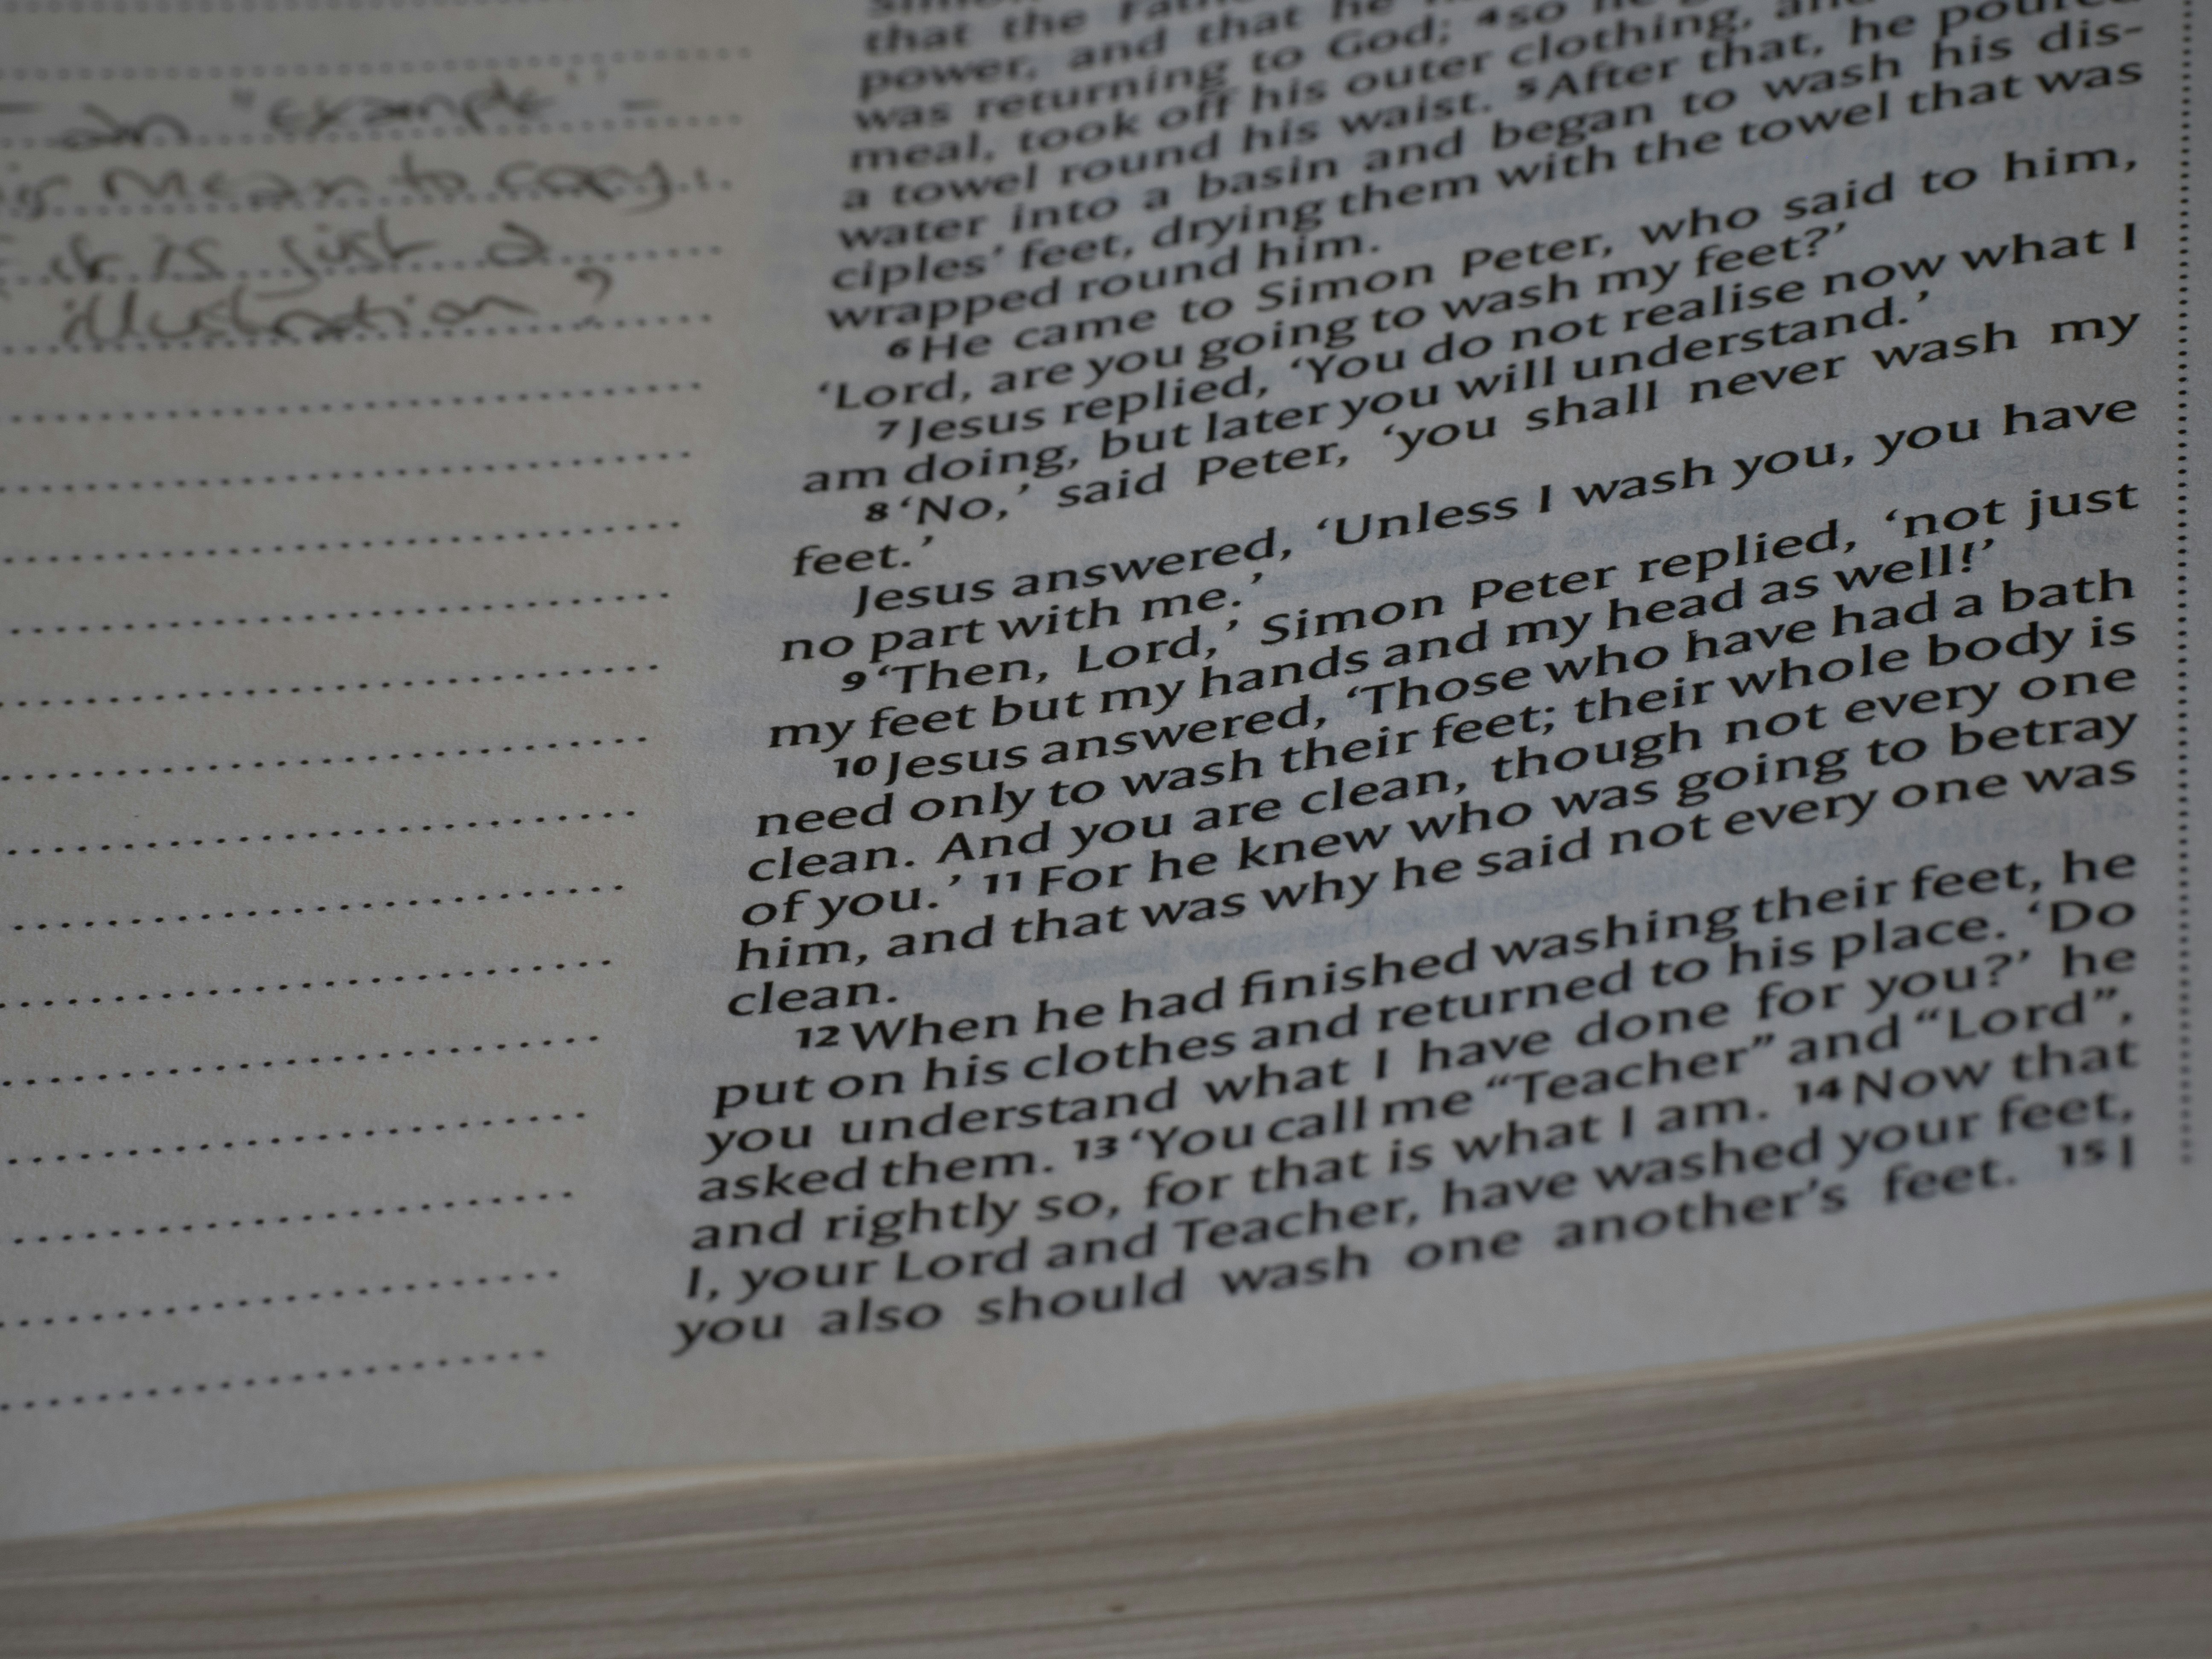 an "example" -
mean to copy.
it is just a
illustration?
that the
power, and that he
was returning to God; 4 so he
meal, took off his outer clothing,
a towel round his waist. 5 After that, he poured
water into a basin and began to wash his dis-
ciples' feet, drying them with the towel that was
wrapped round him.
6 He came to Simon Peter, who said to him,
‘Lord, are you going to wash my feet?’
7 Jesus replied, ‘You do not realise now what I
am doing, but later you will understand.’
8 ‘No,’ said Peter, ‘you shall never wash my
feet.’
Jesus answered, ‘Unless I wash you, you have
no part with me.’
9 ‘Then, Lord,’ Simon Peter replied, ‘not just
my feet but my hands and my head as well!’
10 Jesus answered, ‘Those who have had a bath
need only to wash their feet; their whole body is
clean. And you are clean, though not every one
of you.’ 11 For he knew who was going to betray
him, and that was why he said not every one was
clean.
12 When he had finished washing their feet, he
put on his clothes and returned to his place. ‘Do
you understand what I have done for you?’ he
asked them. 13 ‘You call me “Teacher” and “Lord”,
and rightly so, for that is what I am. 14 Now that
I, your Lord and Teacher, have washed your feet,
you also should wash one another’s feet. 15 I